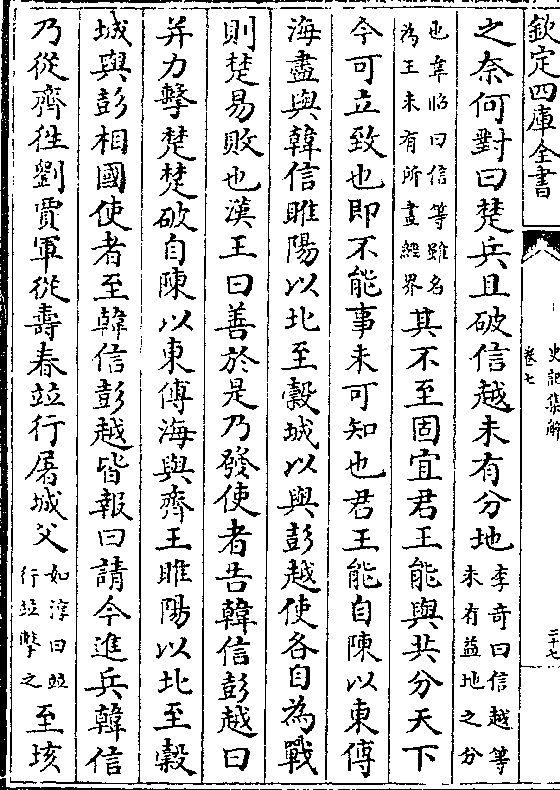 欽定四庫全書
史記集解
卷七
三十七
之奈何對曰楚兵且破信越未有分地李奇曰信越等未有益地之分
也韋昭曰信等雖名為王未有所畫經界其不至固宜君王能與共分天下
今可立致也即不能事未可知也君王能自陳以東傅
海盡與韓信睢陽以北至穀城以與彭越使各自為戰
則楚易敗也漢王曰善於是乃發使者告韓信彭越曰
并力擊楚楚破自陳以東傅海與齊王睢陽以北至穀
城與彭相國使者至韓信彭越皆報曰請今進兵韓信
乃從齊往劉賈軍從壽春竝行屠城父如淳曰竝行竝擊之至垓